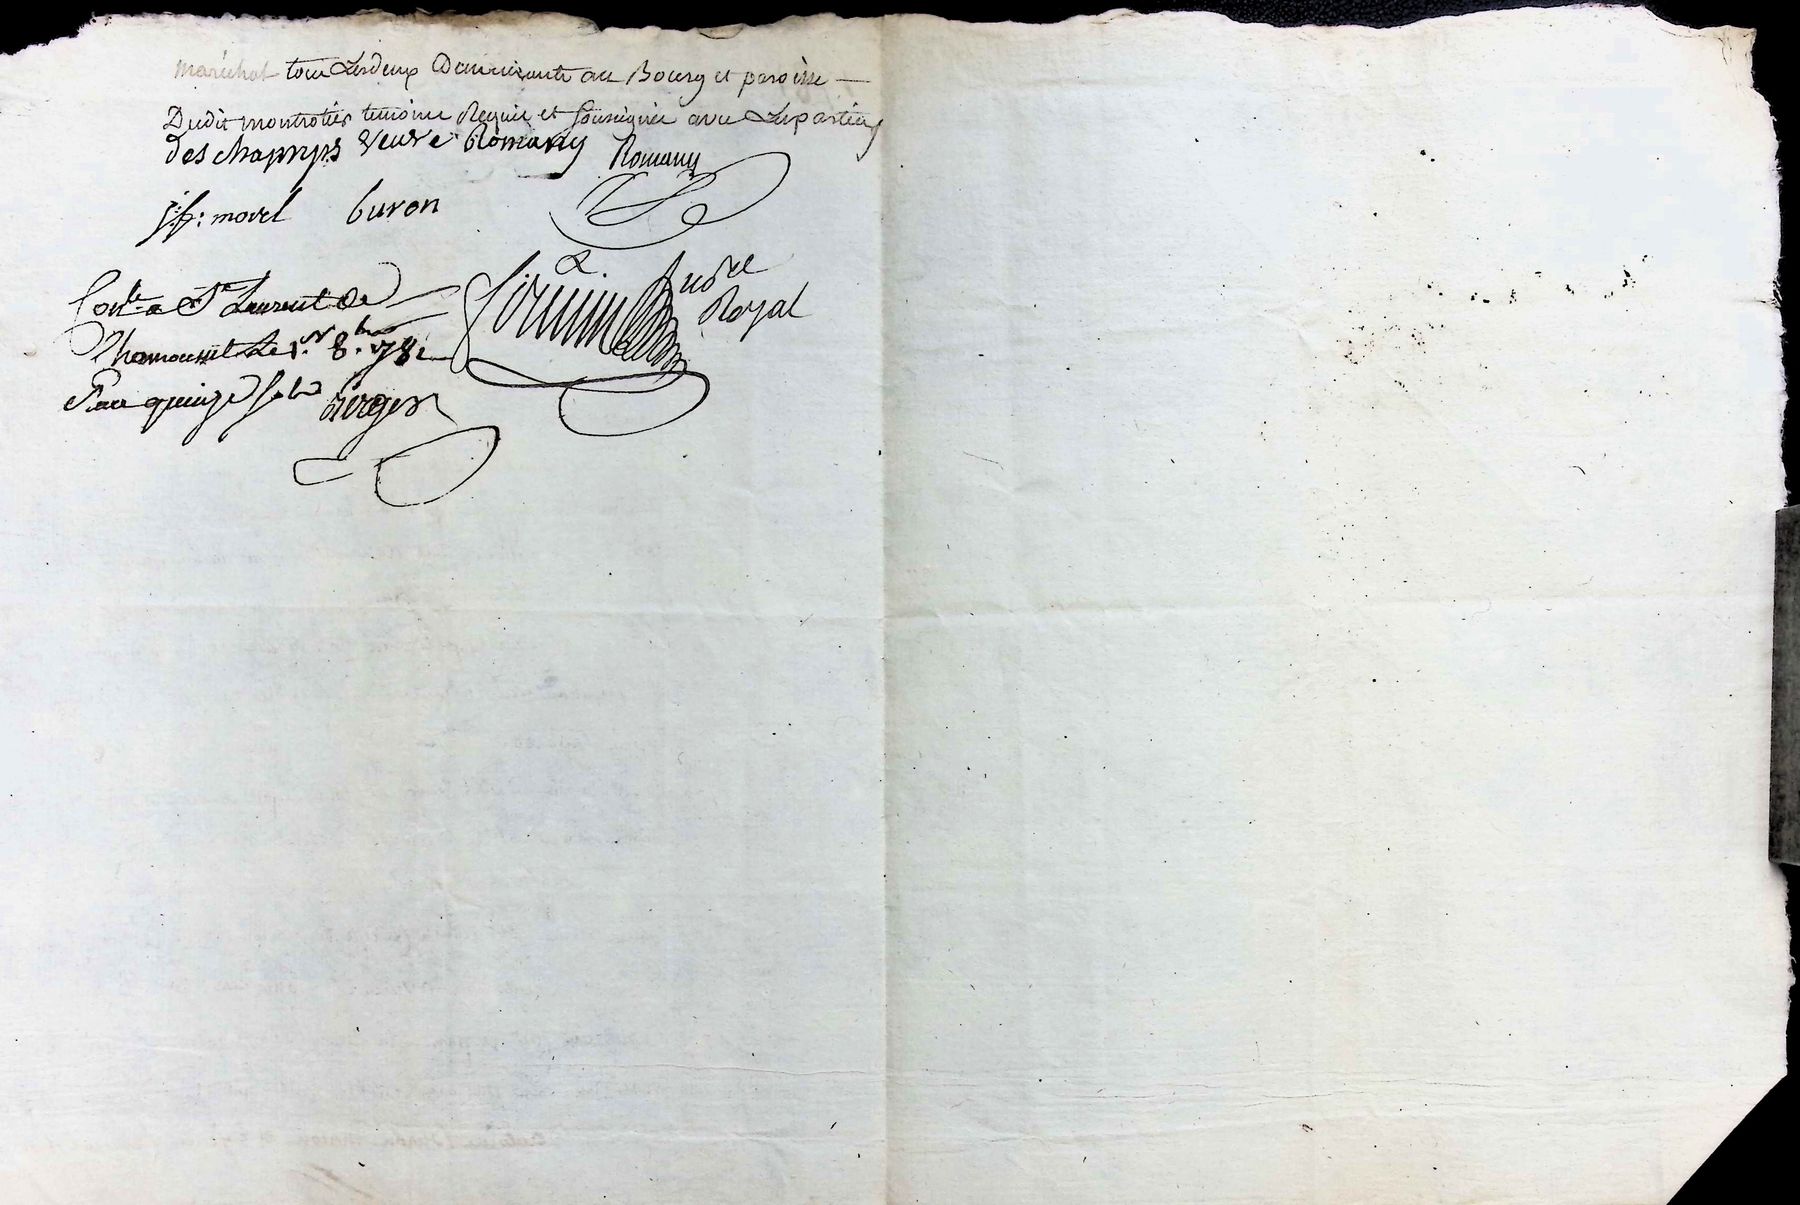 maréchal tous Lesdeux Demeurants au Bourg et paroisse —
Dudit montrotier temoins Requis et soussignés avec Les parties
des champs veuve Romany Romany
j: f: morel buron
Conlé a St Laurent de
Chamousset Le 1er 8bre 178
Nore Royal
Reçu quinze sols Berger